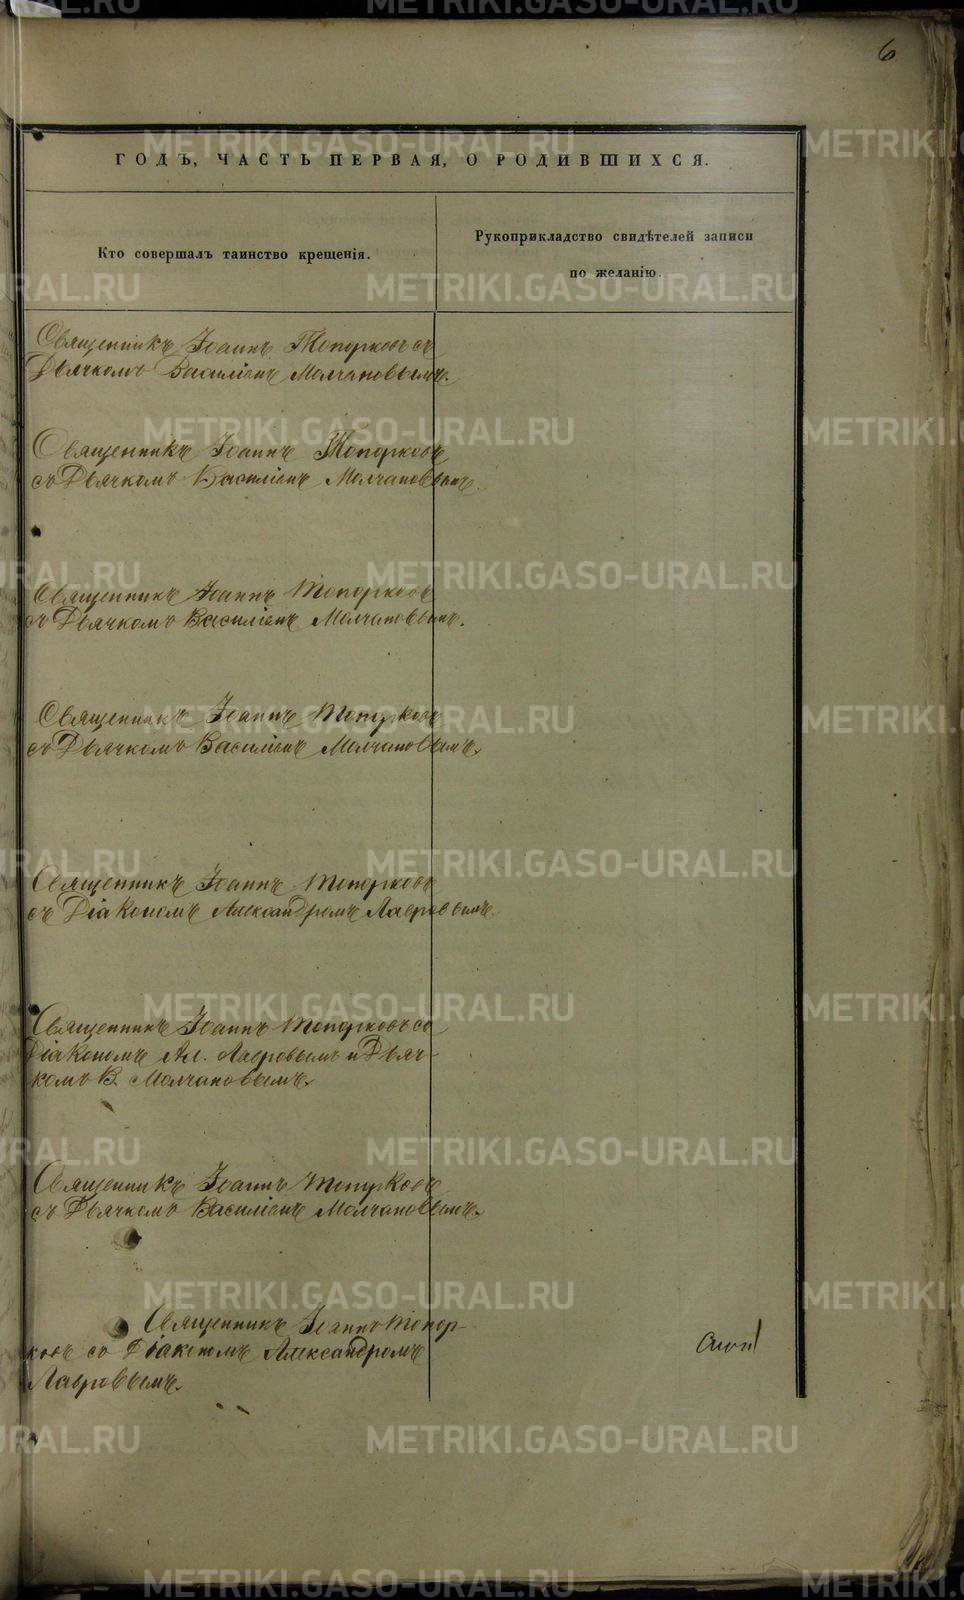 6
ГОДЪ, ЧАСТЬ ПЕРВАЯ, О РОДИВШИХСЯ.
Кто совершалъ таинство крещенія.
Рукоприкладство свидѣтелей записи
по желанію.
Священникъ Іоаннъ Топорковъ съ
Дьячкомъ Василіемъ Молчановымъ.
Священникъ Іоаннъ Топорковъ
съ Дьячкомъ Василіемъ Молчановымъ.
Священникъ Іоаннъ Топорковъ
съ Дьячкомъ Василіемъ Молчановымъ.
Священникъ Іоаннъ Топорковъ
съ Дьячкомъ Василіемъ Молчановымъ.
Священникъ Іоаннъ Топорковъ
съ Діакономъ Александромъ Лавровымъ
Священникъ Іоаннъ Топорковъ со
Діакономъ Ал. Лавровымъ и Дьяч-
комъ В. Молчановымъ.
Священникъ Іоаннъ Топорковъ
съ Дьячкомъ Василіемъ Молчановымъ.
Священникъ Іоаннъ Топор-
ковъ со Діакономъ Александромъ
Лавровымъ.
METRIKI.GASO-URAL.RU